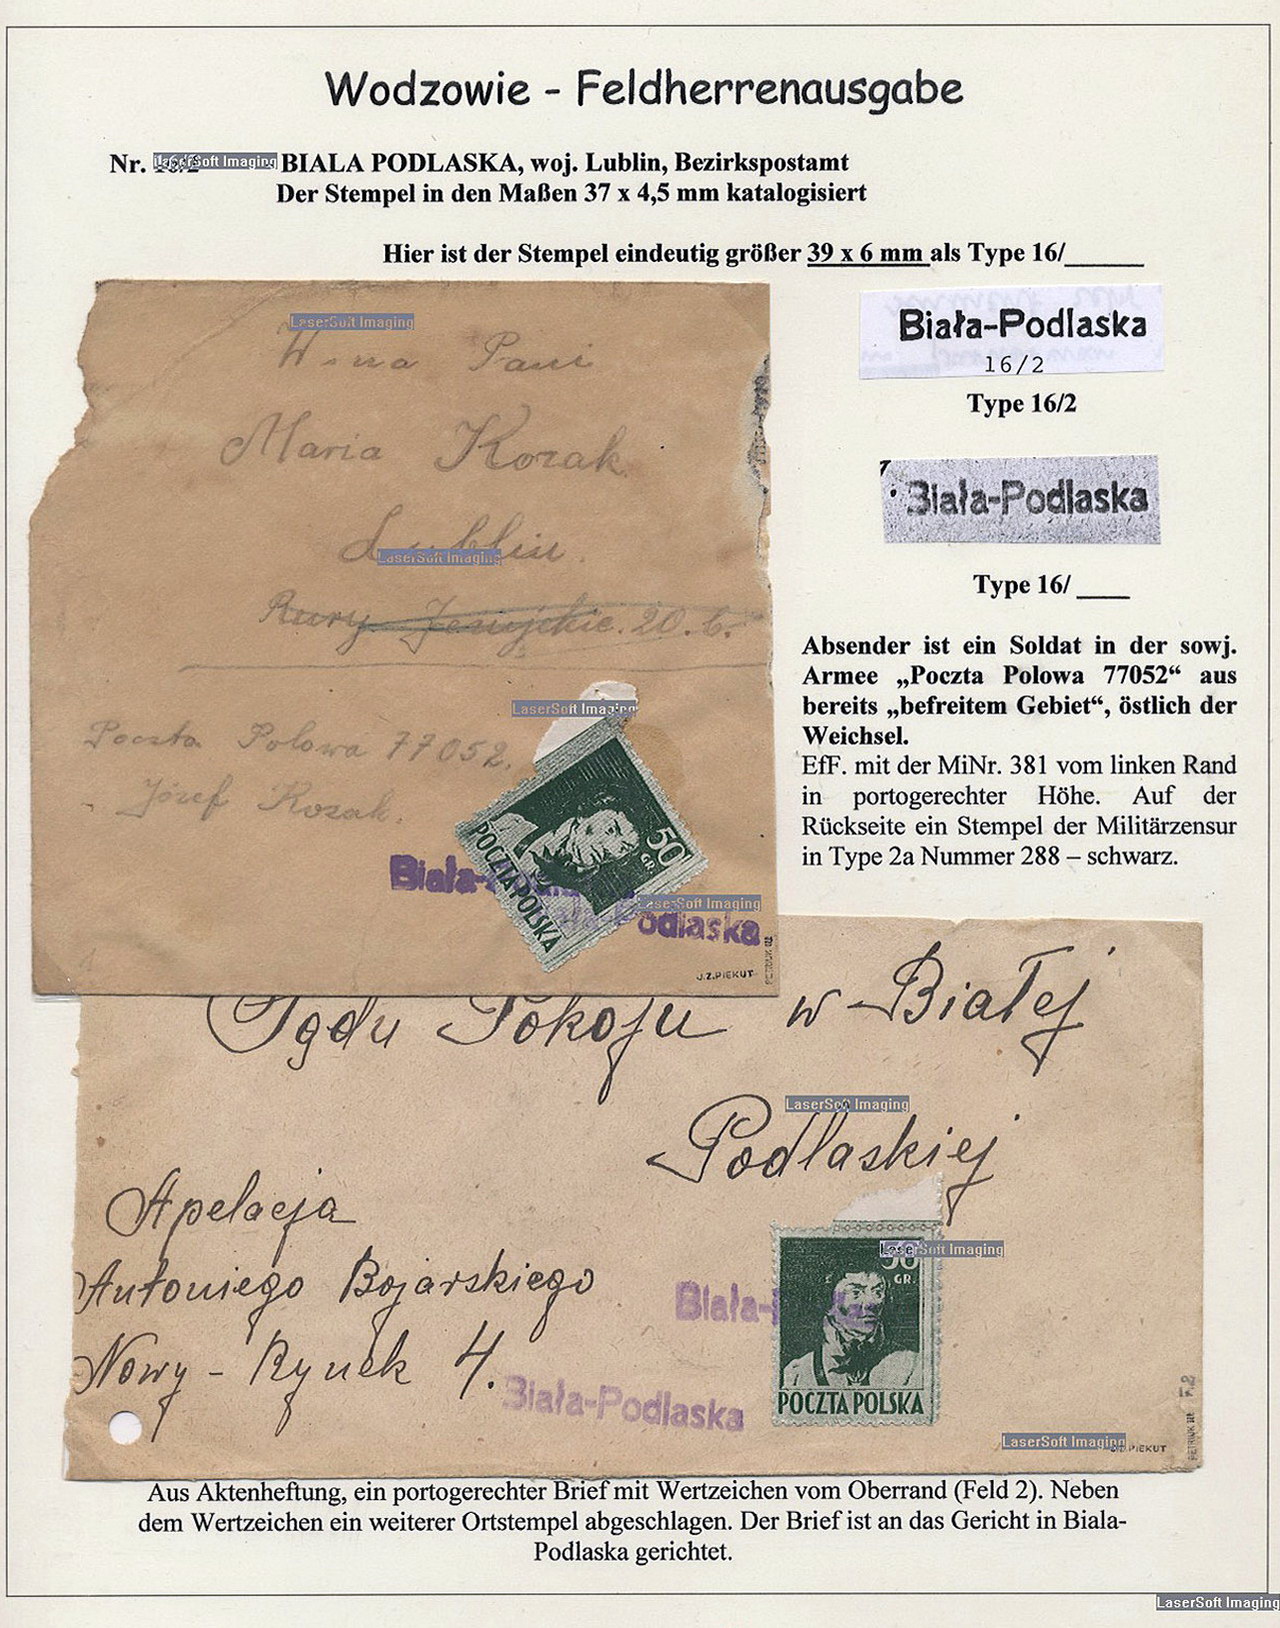 Wodzowie - Feldherrenausgabe
Nr. LaserSoft Imaging BIALA PODLASKA, woj. Lublin, Bezirkspostamt
Der Stempel in den Maßen 37 x 4,5 mm katalogisiert
Hier ist der Stempel eindeutig größer 39 x 6 mm als Type 16/______
LaserSoft Imaging
Pani
Maria Kozak
Lublin
LaserSoft Imaging
Rury Jezujckie. 20. 6.
Biała-Podlaska
16/2
Type 16/2
Biała-Podlaska
Type 16/ ____
Absender ist ein Soldat in der sowj.
Armee „Poczta Polowa 77052“ aus
bereits „befreitem Gebiet“, östlich der
Weichsel.
EfF. mit der MiNr. 381 vom linken Rand
in portogerechter Höhe. Auf der
Rückseite ein Stempel der Militärzensur
in Type 2a Nummer 288 – schwarz.
LaserSoft Imaging
Poczta Polowa 77052.
Józef Kozak.
50 GR.
POCZTA POLSKA
Biała-
LaserSoft Imaging
Podlaska
J.Z.PIEKUT
Sądu Pokoju w Białej
LaserSoft Imaging
Podlaskiej
Apelacja
Antoniego Bojarskiego
Nowy - Rynek 4.
LaserSoft Imaging
50 GR.
POCZTA POLSKA
Biała-
Biała-Podlaska
F.2
LaserSoft Imaging
PIEKUT
Aus Aktenheftung, ein portogerechter Brief mit Wertzeichen vom Oberrand (Feld 2). Neben
dem Wertzeichen ein weiterer Ortstempel abgeschlagen. Der Brief ist an das Gericht in Biala-
Podlaska gerichtet.
LaserSoft Imaging